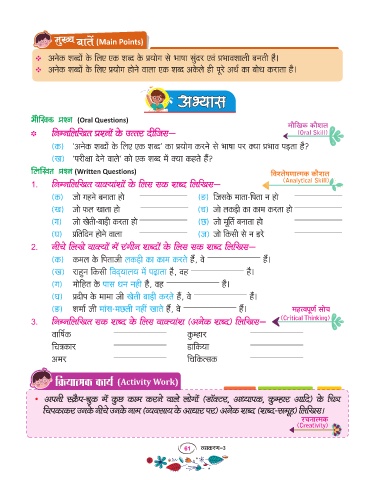 मुख्य बातें (Main Points)
❖ अनेक शब्दों के लिए एक शब्द के प्रयोग से भाषा सुंदर एवं प्रभावशाली बनती है।
❖ अनेक शब्दों के लिए प्रयोग होने वाला एक शब्द अकेले ही पूरे अर्थ का बोध कराता है।
अभ्यास
मौखिक प्रश्न (Oral Questions)
मौखिक कौशल
(Oral Skill)
❖ निम्नलिखित प्रश्नों के उत्तर दीजिस–
(क) 'अनेक शब्दों के लिए एक शब्द' का प्रयोग करने से भाषा पर क्या प्रभाव पड़ता है?
(ख) 'परीक्षा देने वाले' को एक शब्द में क्या कहते हैं?
लिखित प्रश्न (Written Questions)
विश्लेषणात्मक कौशल
(Analytical Skill)
1. निम्नलिखित वाक्यांशों के लिस सक शब्द लिखिस–
(क) जो गहने बनाता हो (ङ) जिसके माता-पिता न हो
(ख) जो फल खाता हो (च) जो लकड़ी का काम करता हो
(ग) जो खेती-बाड़ी करता हो (छ) जो मूर्ति बनाता हो
(घ) प्रतिदिन होने वाला (ज) जो किसी से न डरे
2. नीचे लिखे वाक्यों में रंगीन शब्दों के लिस सक शब्द लिखिस–
(क) कमल के पिताजी लकड़ी का काम करते हैं, वे हैं।
(ख) राहुन किसी विद्यालय में पढ़ाता है, वह है।
(ग) मोहित के पास धन नहीं है, वह है।
(घ) प्रदीप के मामा जी खेती बाड़ी करते हैं, वे हैं।
(ङ) शर्मा जी मांस-मछली नहीं खाते हैं, वे हैं।
महत्वपूर्ण सोच
(Critical Thinking)
3. निम्नलिखित सक शब्द के लिस वाक्यांश (अनेक शब्द) लिखिस–
वार्षिक कुम्हार
चित्रकार डाकिया
अमर चिकित्सक
क्रियात्मक कार्य (Activity Work)
• अपनी स्क्रैप-बुक में कुछ काम करने वाले लोगों (डॉक्टर, अध्यापक, कुम्हार आदि) के चित्र
चिपकाकर उनके नीचे उनके नाम (व्यवसाय के आधार पर) अनेक शब्द (शब्द-समूह) लिखिस।
रचनात्मक
(Creativity)
61 व्याकरण-3